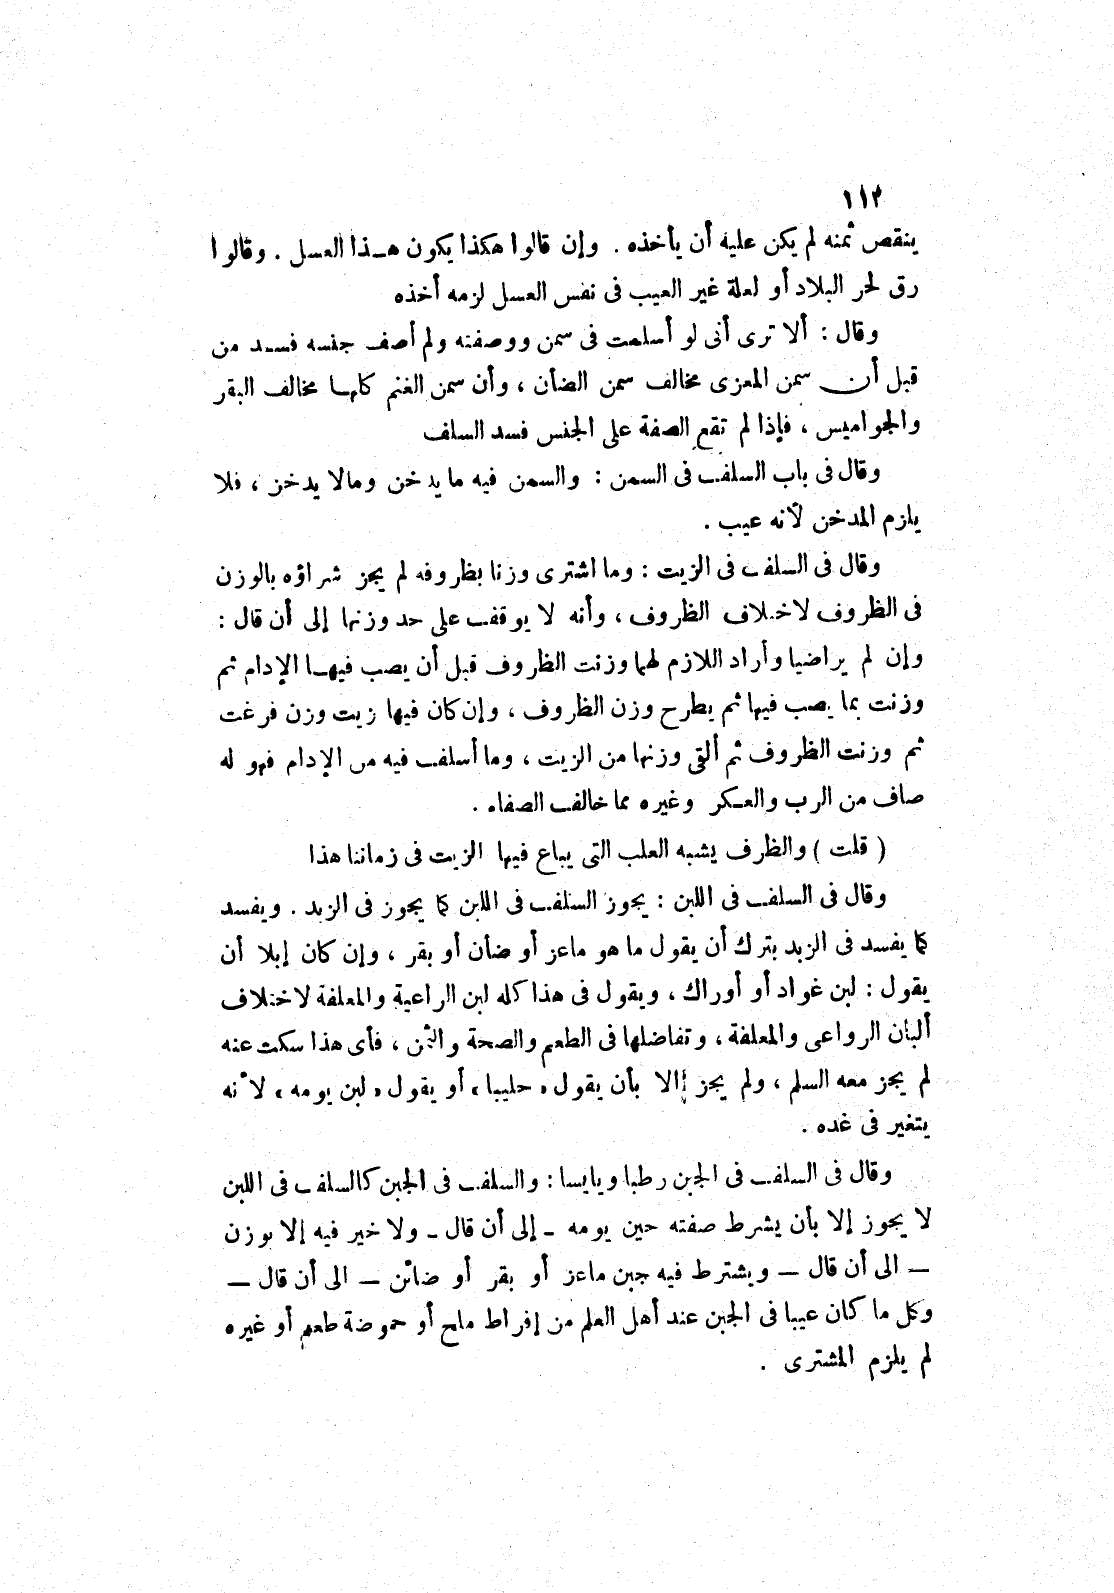 ١١٢
ينقص ثمنه لم يكن عليه أن يأخذه . وإن قالوا هكذا يكون هـذا العسل . وقالوا
رق لحر البلاد أو لعلة غير العيب فى نفس العسل لزمه أخذه
وقال : ألا ترى أنى لو أسلمت فى سمن ووصفته ولم أصف جنسه فسـد من
قبل أن سمن المعزى مخالف سمن الضأن ، وأن سمن الغنم كلهـا مخالف البقر
والجواميس ، فإذا لم تقع الصفة على الجنس فسد السلف
وقال فى باب السلف فى السمن : والسمن فيه ما يدخن ومالا يدخن ، فلا
يلزم المدخن لأنه عيب .
وقال فى السلف فى الزيت : وما اشترى وزنا بظروفه لم يجز شراؤه بالوزن
فى الظروف لاختلاف الظروف ، وأنه لا يوقف على حد وزنها إلى أن قال :
وإن لم يراضيا وأراد اللازم لهما وزنت الظروف قبل أن يصب فيهـا الإدام ثم
وزنت بما يصب فيها ثم يطرح وزن الظروف ، وإن كان فيها زيت وزن فرغت
ثم وزنت الظروف ثم ألقى وزنها من الزيت ، وما أسلف فيه من الإدام فهو له
صاف من الرب والعـكر وغيره مما خالف الصفاء .
( قلت ) والظرف يشبه العلب التى يباع فيها الزيت فى زماننا هذا
وقال فى السلف فى اللبن : يجوز السلف فى اللبن كما يجوز فى الزبد . ويفسد
كما يفسد فى الزبد بترك أن يقول ما هو ماعز أو ضأن أو بقر ، وإن كان إبلا أن
يقول : لبن غواد أو أوراك ، ويقول فى هذا كله لبن الراعية والمعلفة لاختلاف
ألبان الرواعى والمعلفة ، وتفاضلها فى الطعم والصحة والثمن ، فأى هذا سكت عنه
لم يجز معه السلم ، ولم يجز إلا بأن يقول « حليبا » أو يقول « لبن يومه » لأنه
يتغير فى غده .
وقال فى السلف فى الجبن رطبا ويابسا : والسلف فى الجبن كالسلف فى اللبن
لا يجوز إلا بأن يشرط صفته حين يومه ـ إلى أن قال ـ ولا خير فيه إلا بوزن
— الى أن قال — ويشترط فيه جبن ماعز أو بقر أو ضائن — الى أن قال —
وكل ما كان عيبا فى الجبن عند أهل العلم من إفراط ملح أو حموضة طعم أو غيره
لم يلزم المشترى .